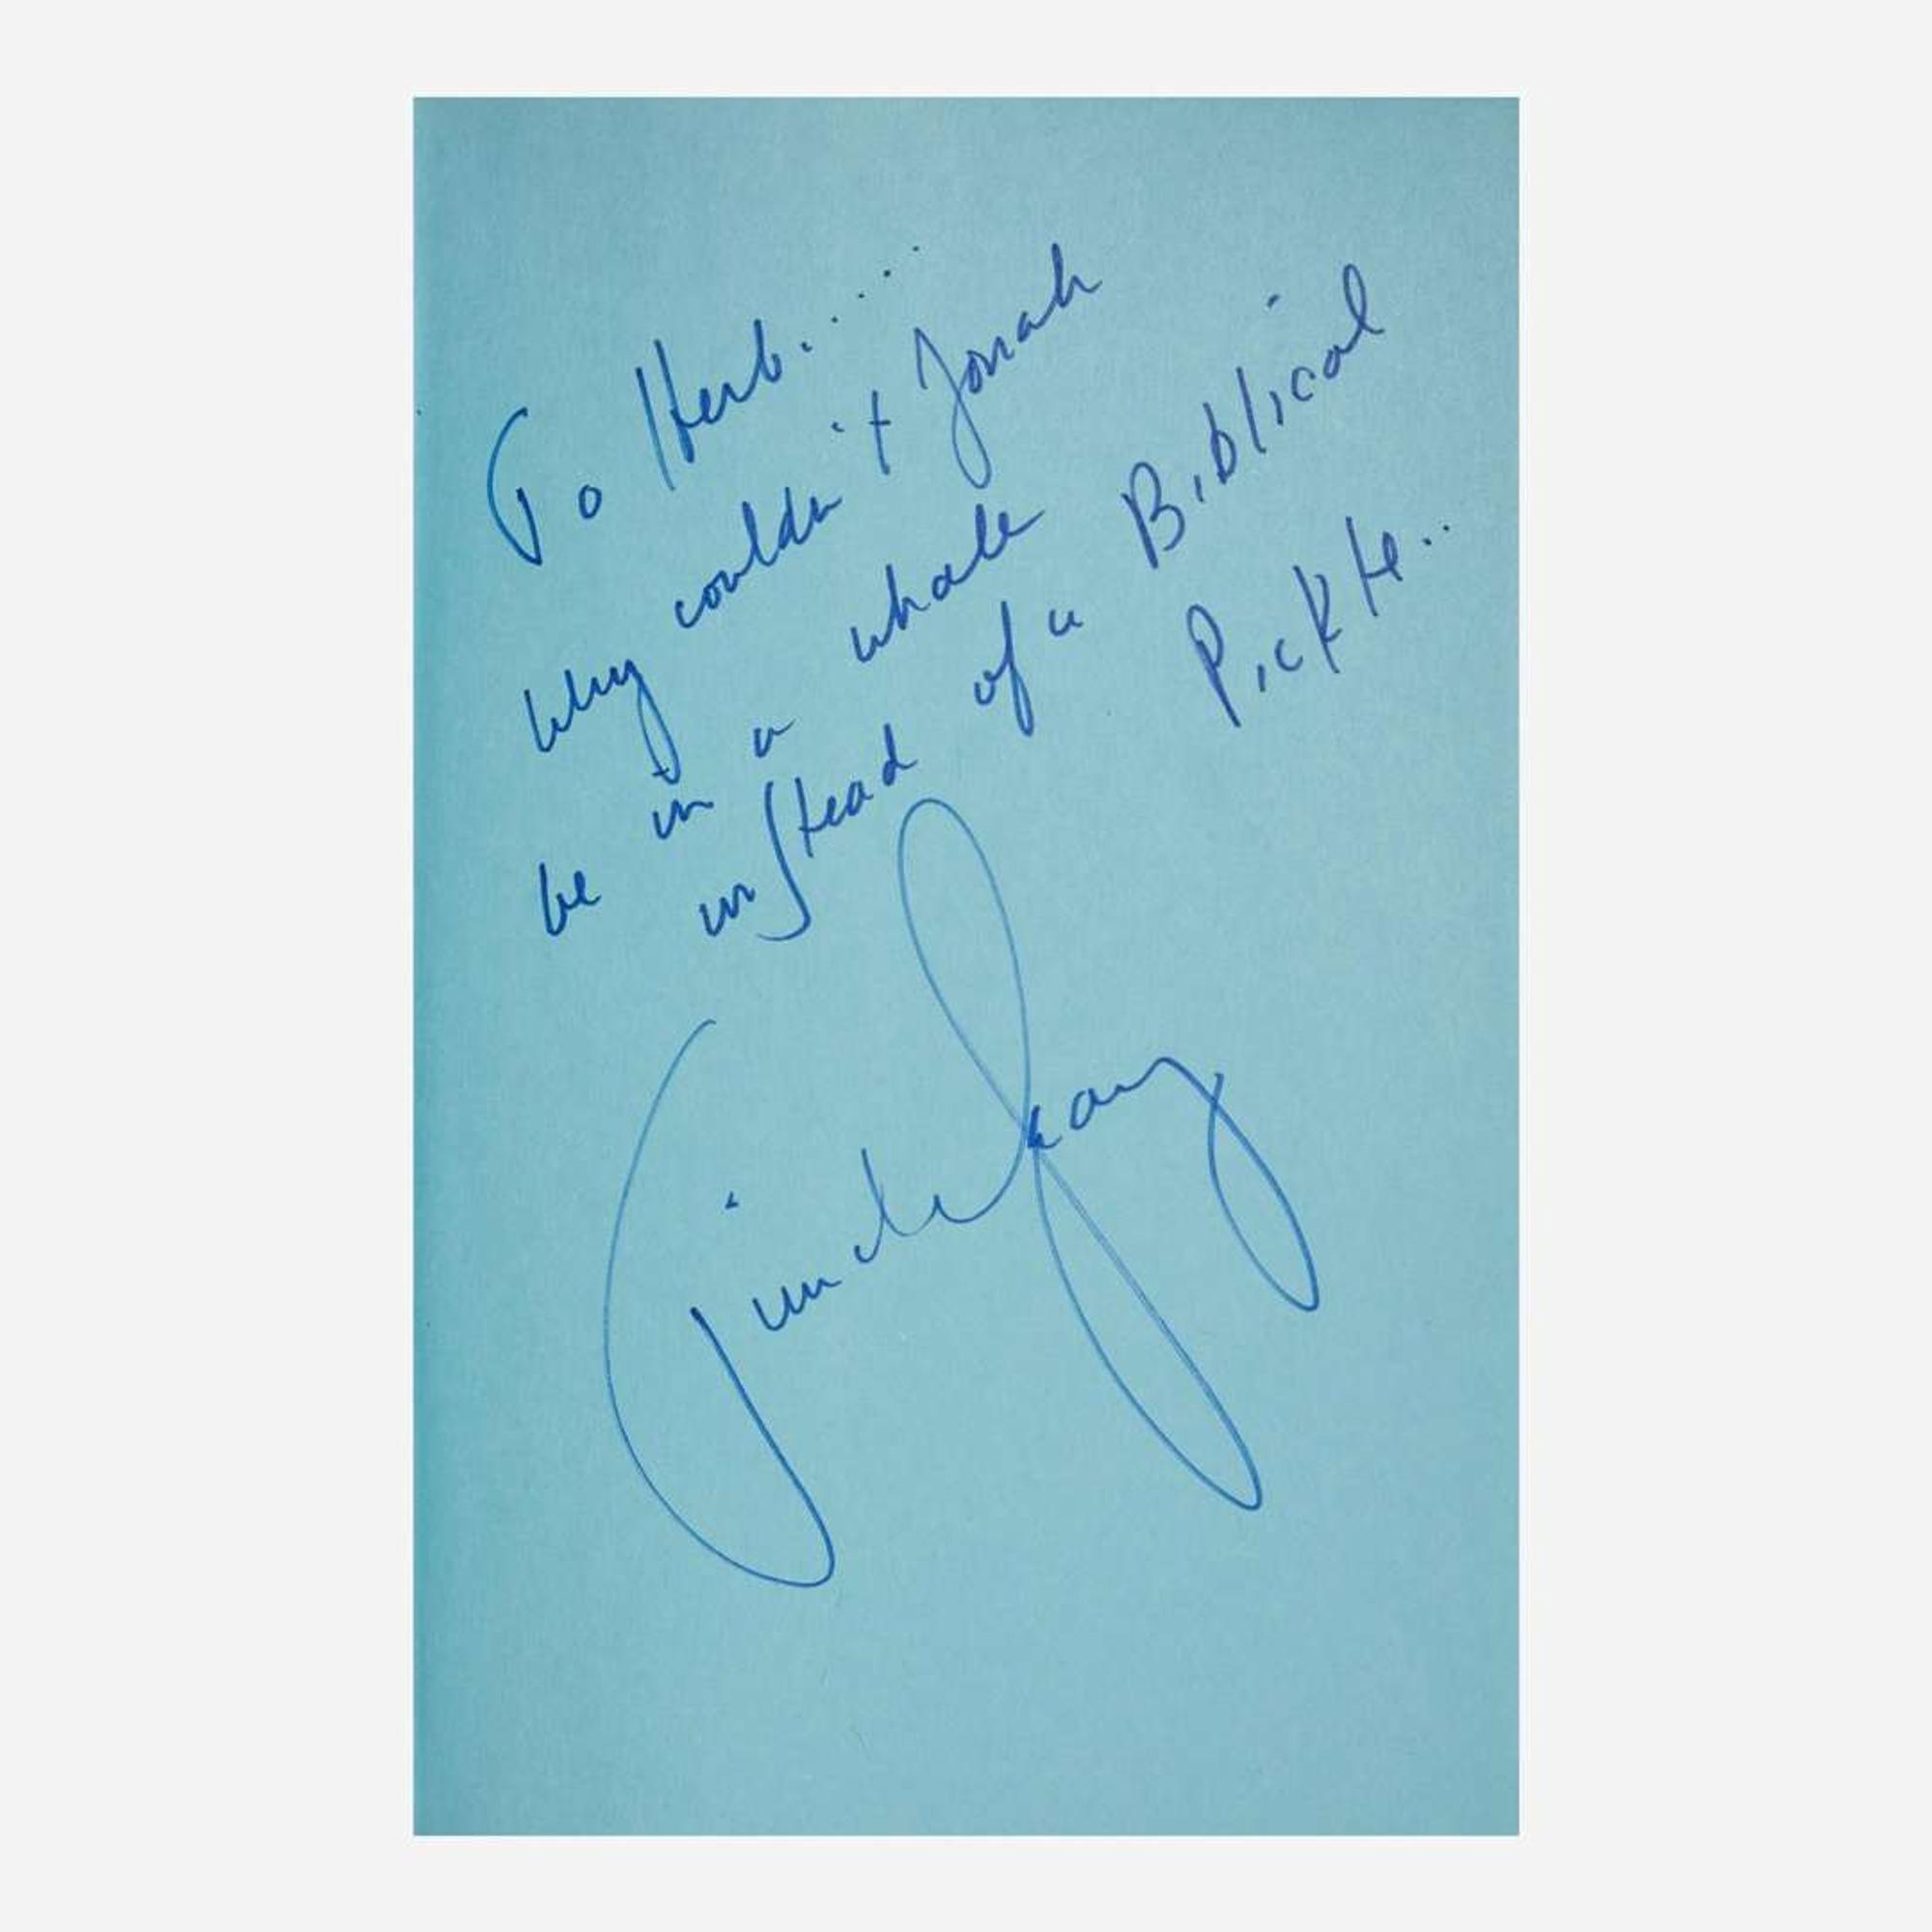 To Herb.....
Why couldn't Jonah
be in a whale Biblical
instead of a Pickle..